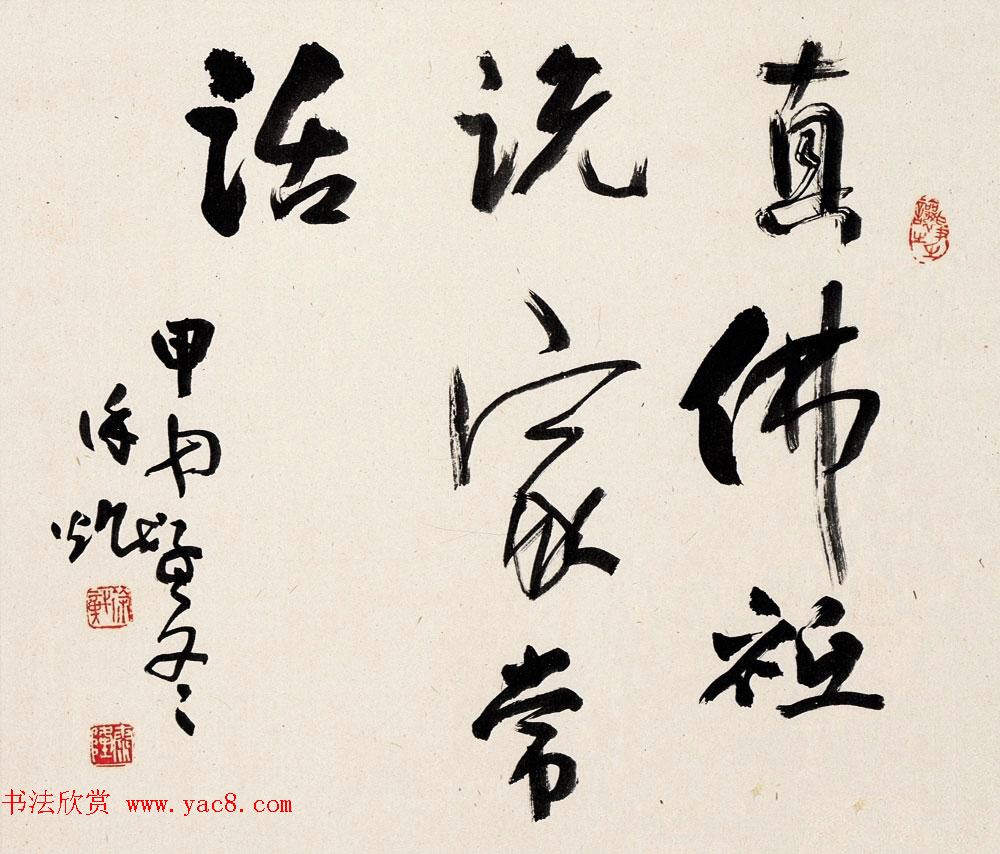 真佛祖
说家常
话
甲申孟冬
徐炽
书法欣赏 www.yac8.com